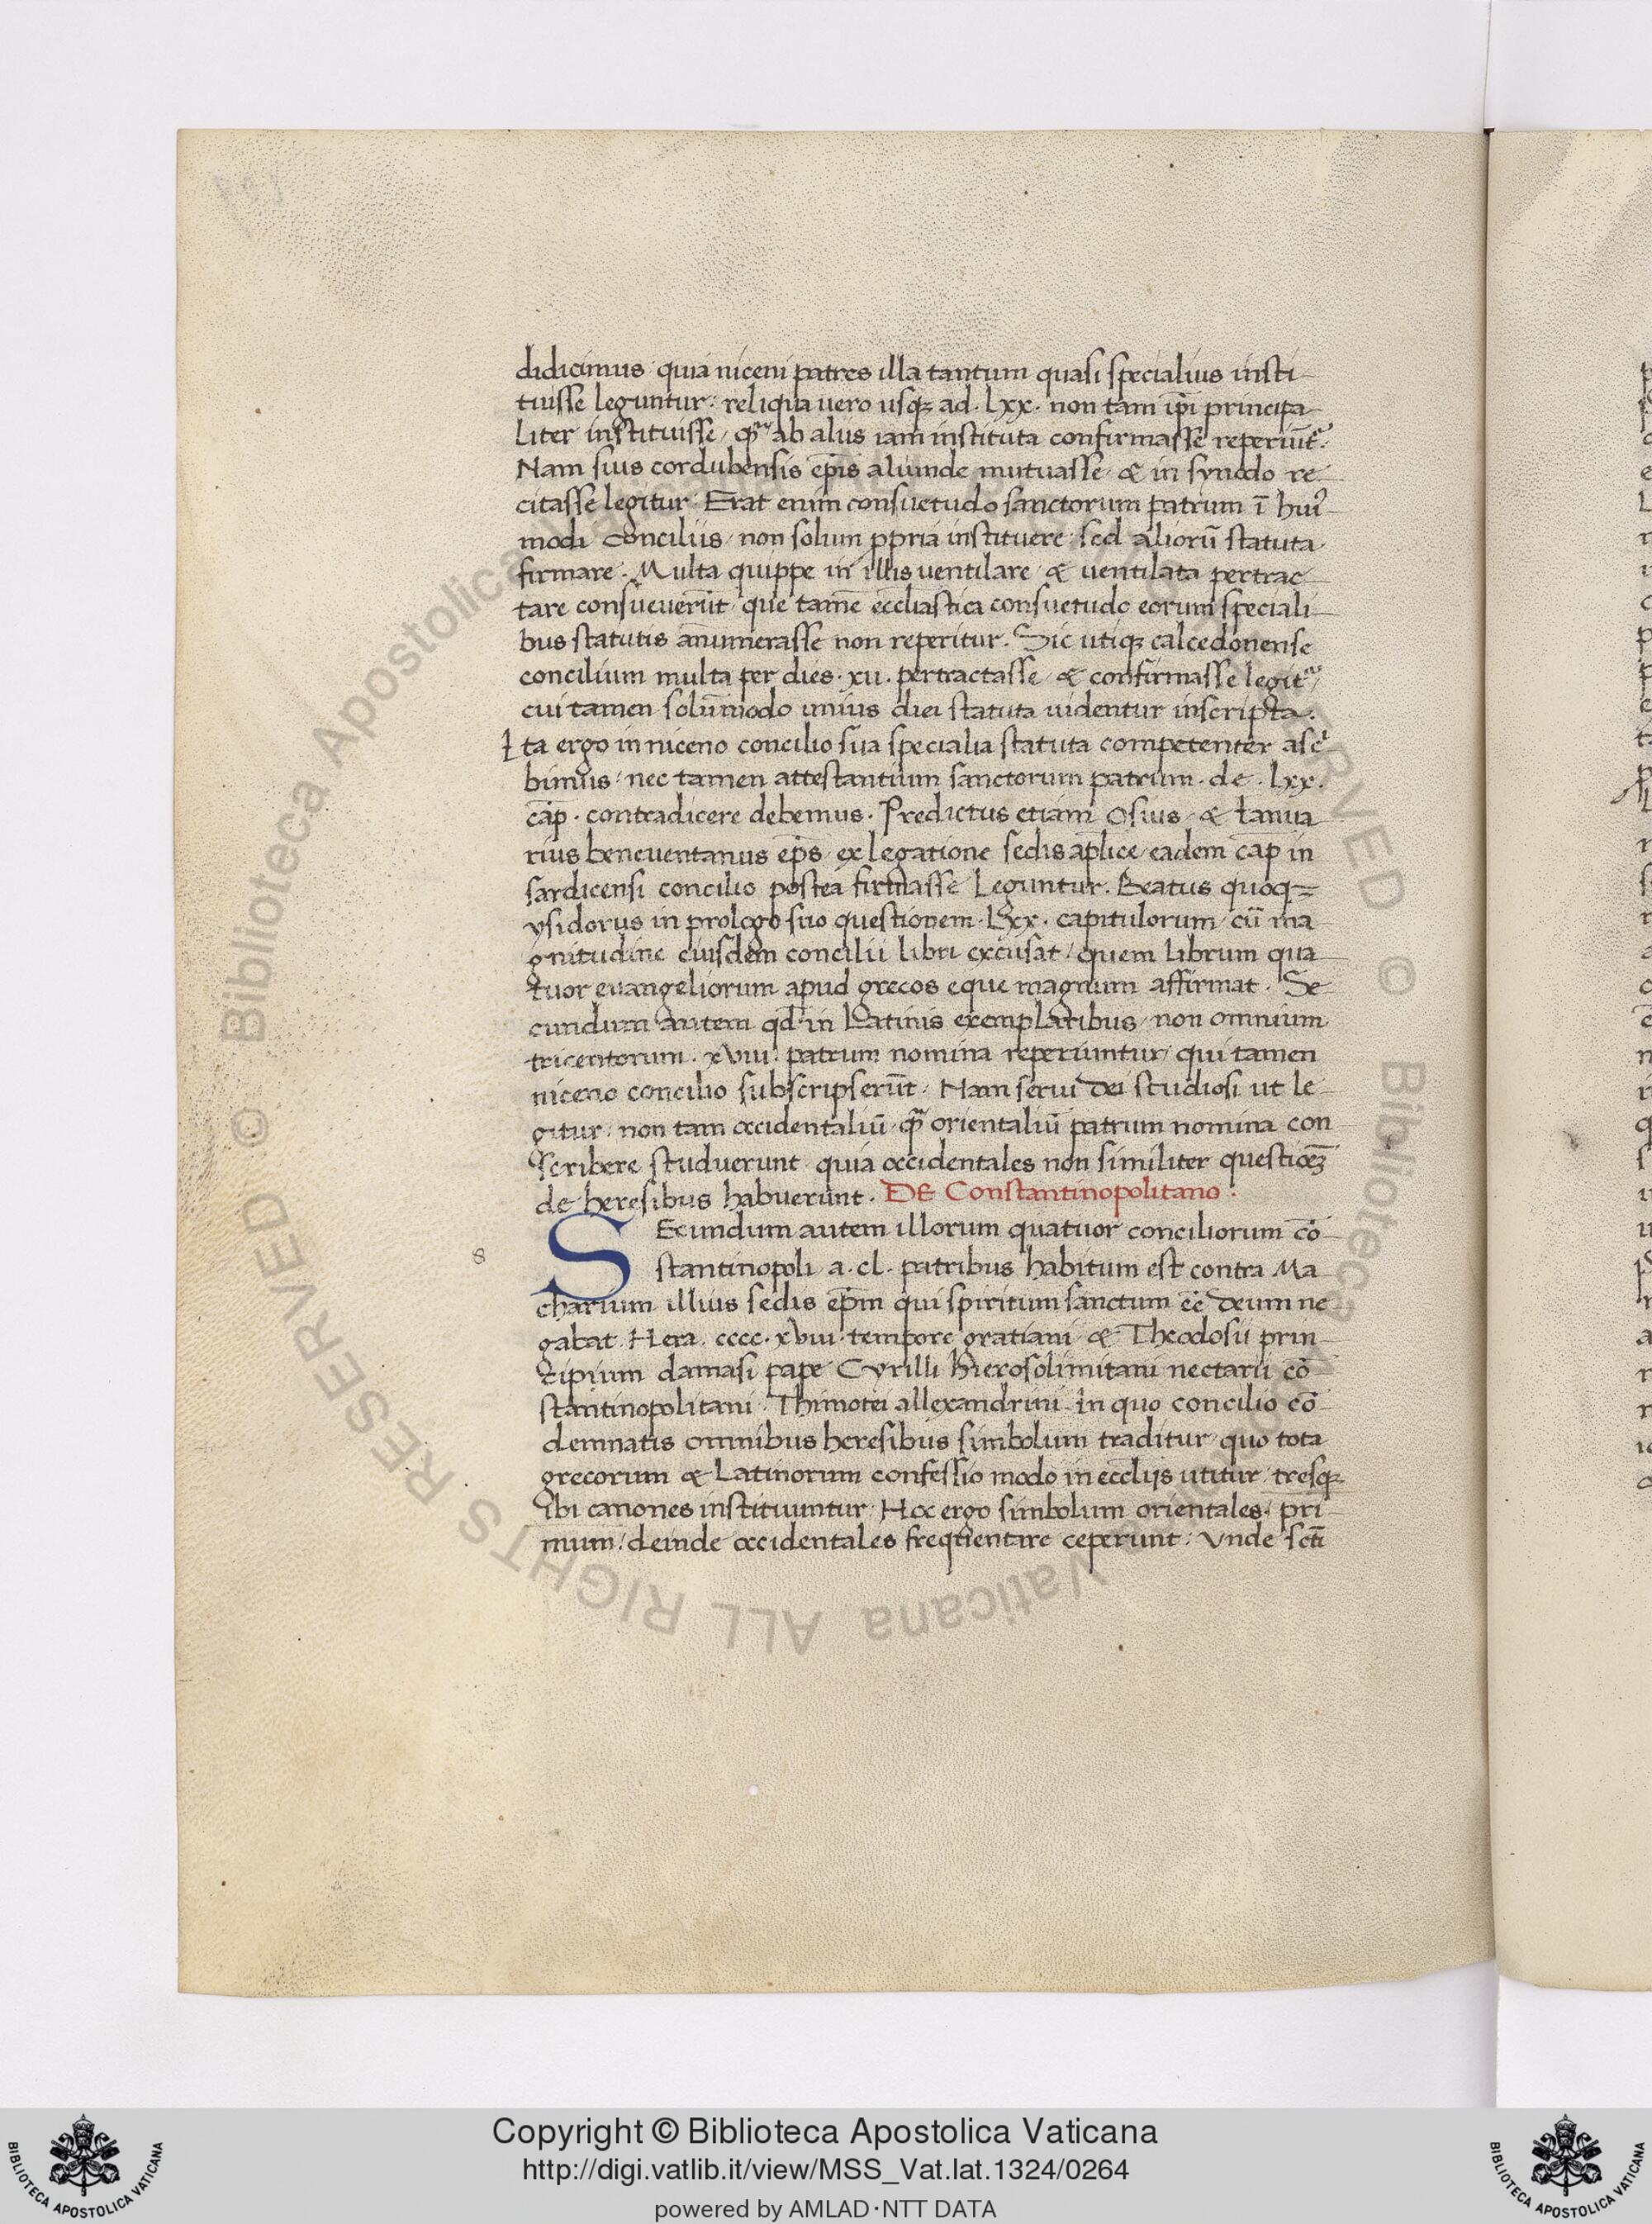 didicimus quia niceni patres illa tantum quasi specialius insti
tuisse leguntur: reliqua uero usq ad · Lxx · non tam ip̄i principa
liter instituisse / qͣ ab aliis iam instituta confirmasse reperiūt᷑.
Nam suis cordubensis ep̄is aliunde mutuasse & in synodo re
citasse legitur · Erat enim consuetudo sanctorum patrum ī hui᷒
modi conciliis / non solum ꝓpria instituere sed aliorū statuta
firmare. Multa quippe in illis uentilare & uentilata pertrac
tare consueuerūt que tamē ecclīastica consuetudo eorum speciali
bus statutis an̄umerasse non reperitur. Sic utiqꝫ calcedonense
concilium multa per dies · xii · pertractasse & confirmasse legit᷑
cui tamen solūmodo unius diei statuta uidentur inscripta.
Ita ergo in niceno concilio sua specialia statuta competenter ascͥ
bimus / nec tamen attestantium sanctorum patrum · de · Lxx.
cāp · contradicere debemus. Predictus etiam Osius & Ianua
rius beneuentanus ep̄s ex legatione sedis ap̄lice / eadem cāp in
sardicensi concilio postea firmasse Leguntur. Beatus quoq=
ysidorus in prologo suo questionem · Lxx · capitulorum / cū ma
gnitudine eiusdem concilii libri excusat / quem librum qua
tuor euangeliorum apud grecos eque magnum affirmat. Se
cundum autem qđ in Latinis exemplaribus / non omnium
tricentorum · xviii · patrum nomina reperiuntur / qui tamen
niceno concilio subscripserūt · Nam serui dei studiosi ut le
gitur / non tam occidentaliū qͣ orientaliū patrum nomina con
scribere studuerunt quia occidentales non similiter questiōeꝫ
de heresibus habuerunt. DE Constantinopolitano :
8
SEcundum autem illorum quatuor conciliorum cō
stantinopoli a · cl · patribus habitum est contra Ma
charium illius sedis ep̄m qui spiritum sanctum eē deum ne
gabat Hera · cccc · xviii · tempore gratiani & Theodosii prin
cipium damasi pape Cyrilli hierosolimitani nectarii cō
stantinopolitani Thimotei allexandrini In quo concilio cō
demnatis omnibus heresibus simbolum traditur quo tota
grecorum & Latinorum confessio modo in ecclīis utitur tresqꝫ
ibi canones instituuntur Hoc ergo simbolum orientales · pri
mum / deinde occidentales frequentare ceperunt · Vnde scti̅
Copyright © Biblioteca Apostolica Vaticana
http://digi.vatlib.it/view/MSS_Vat.lat.1324/0264
powered by AMLAD·NTT DATA